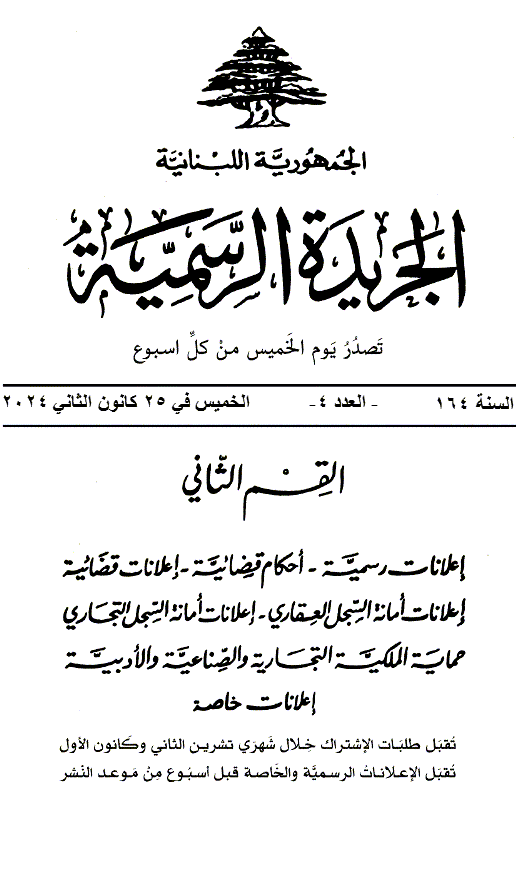 الجُمهُوريَّة اللبْنانيَّة
الجَريدَة الرسَّمِيَّة
تَصدُرُ يَوم الخَميس منْ كلِّ اسبوع
السنة ١٦٤ - العدد ٤- الخميس في ٢٥ كانون الثاني ٢٠٢٤
القِسْم الثّاني
إعلانات رسميَّة - أحكام قضائيَّة - إعلانات قضائية
إعلانات أمانة السِّجل العقاري - إعلانات أمانة السِّجل التجاري
حماية الملكيَّة التجارية والصِّناعيَّة والأدبيَّة
إعلانات خاصة
تُقبَل طلبَات الإشتراك خِلال شَهرَي تشرين الثاني وكَانون الأول
تُقبَل الإعلاناتُ الرسميَّة والخَاصة قبل أسبُوع مِنْ مَوعد النّشر